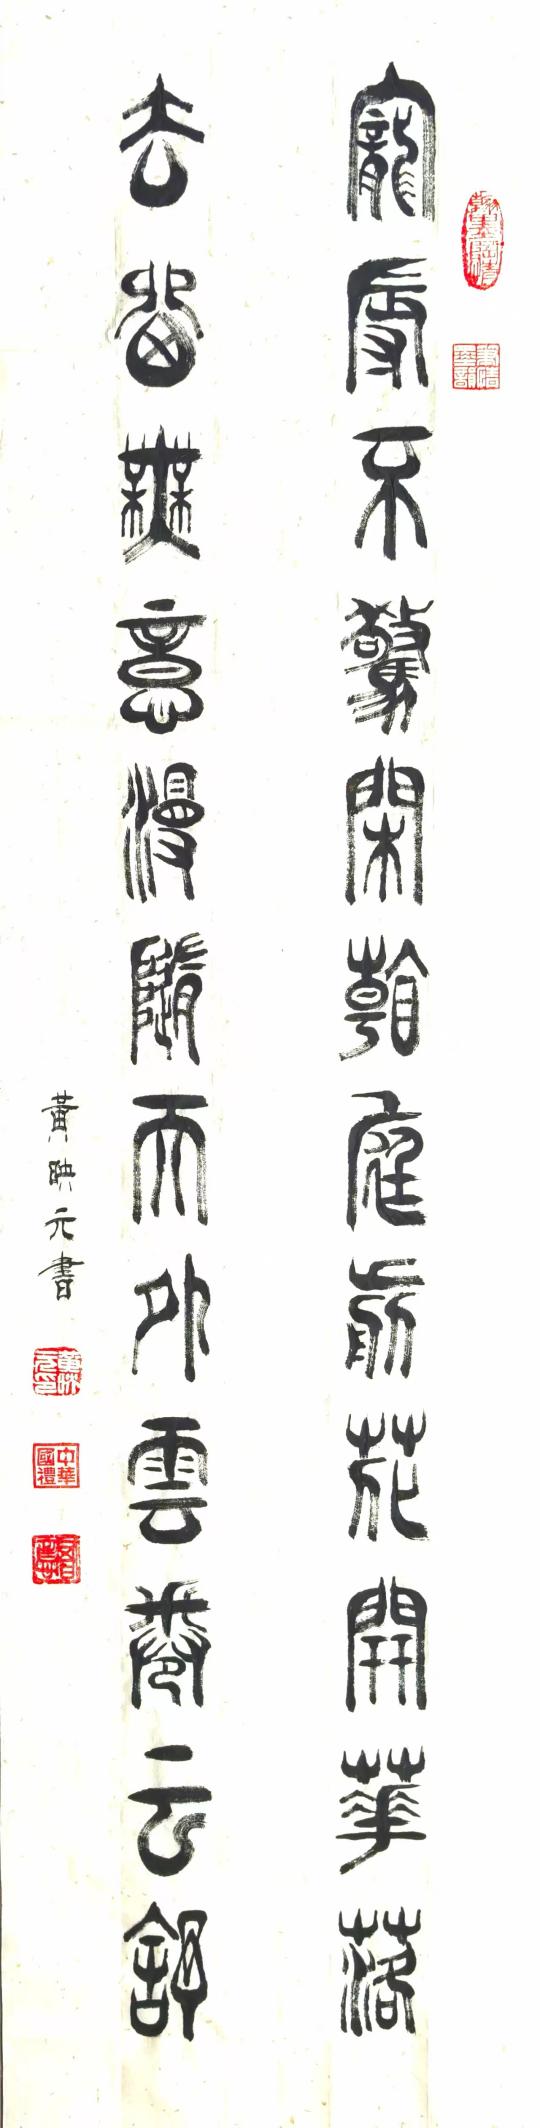 寵辱不驚閑看庭前花開華落
去留無意漫隨天外雲卷云舒
黃映元書
黃映元印
中華國禮